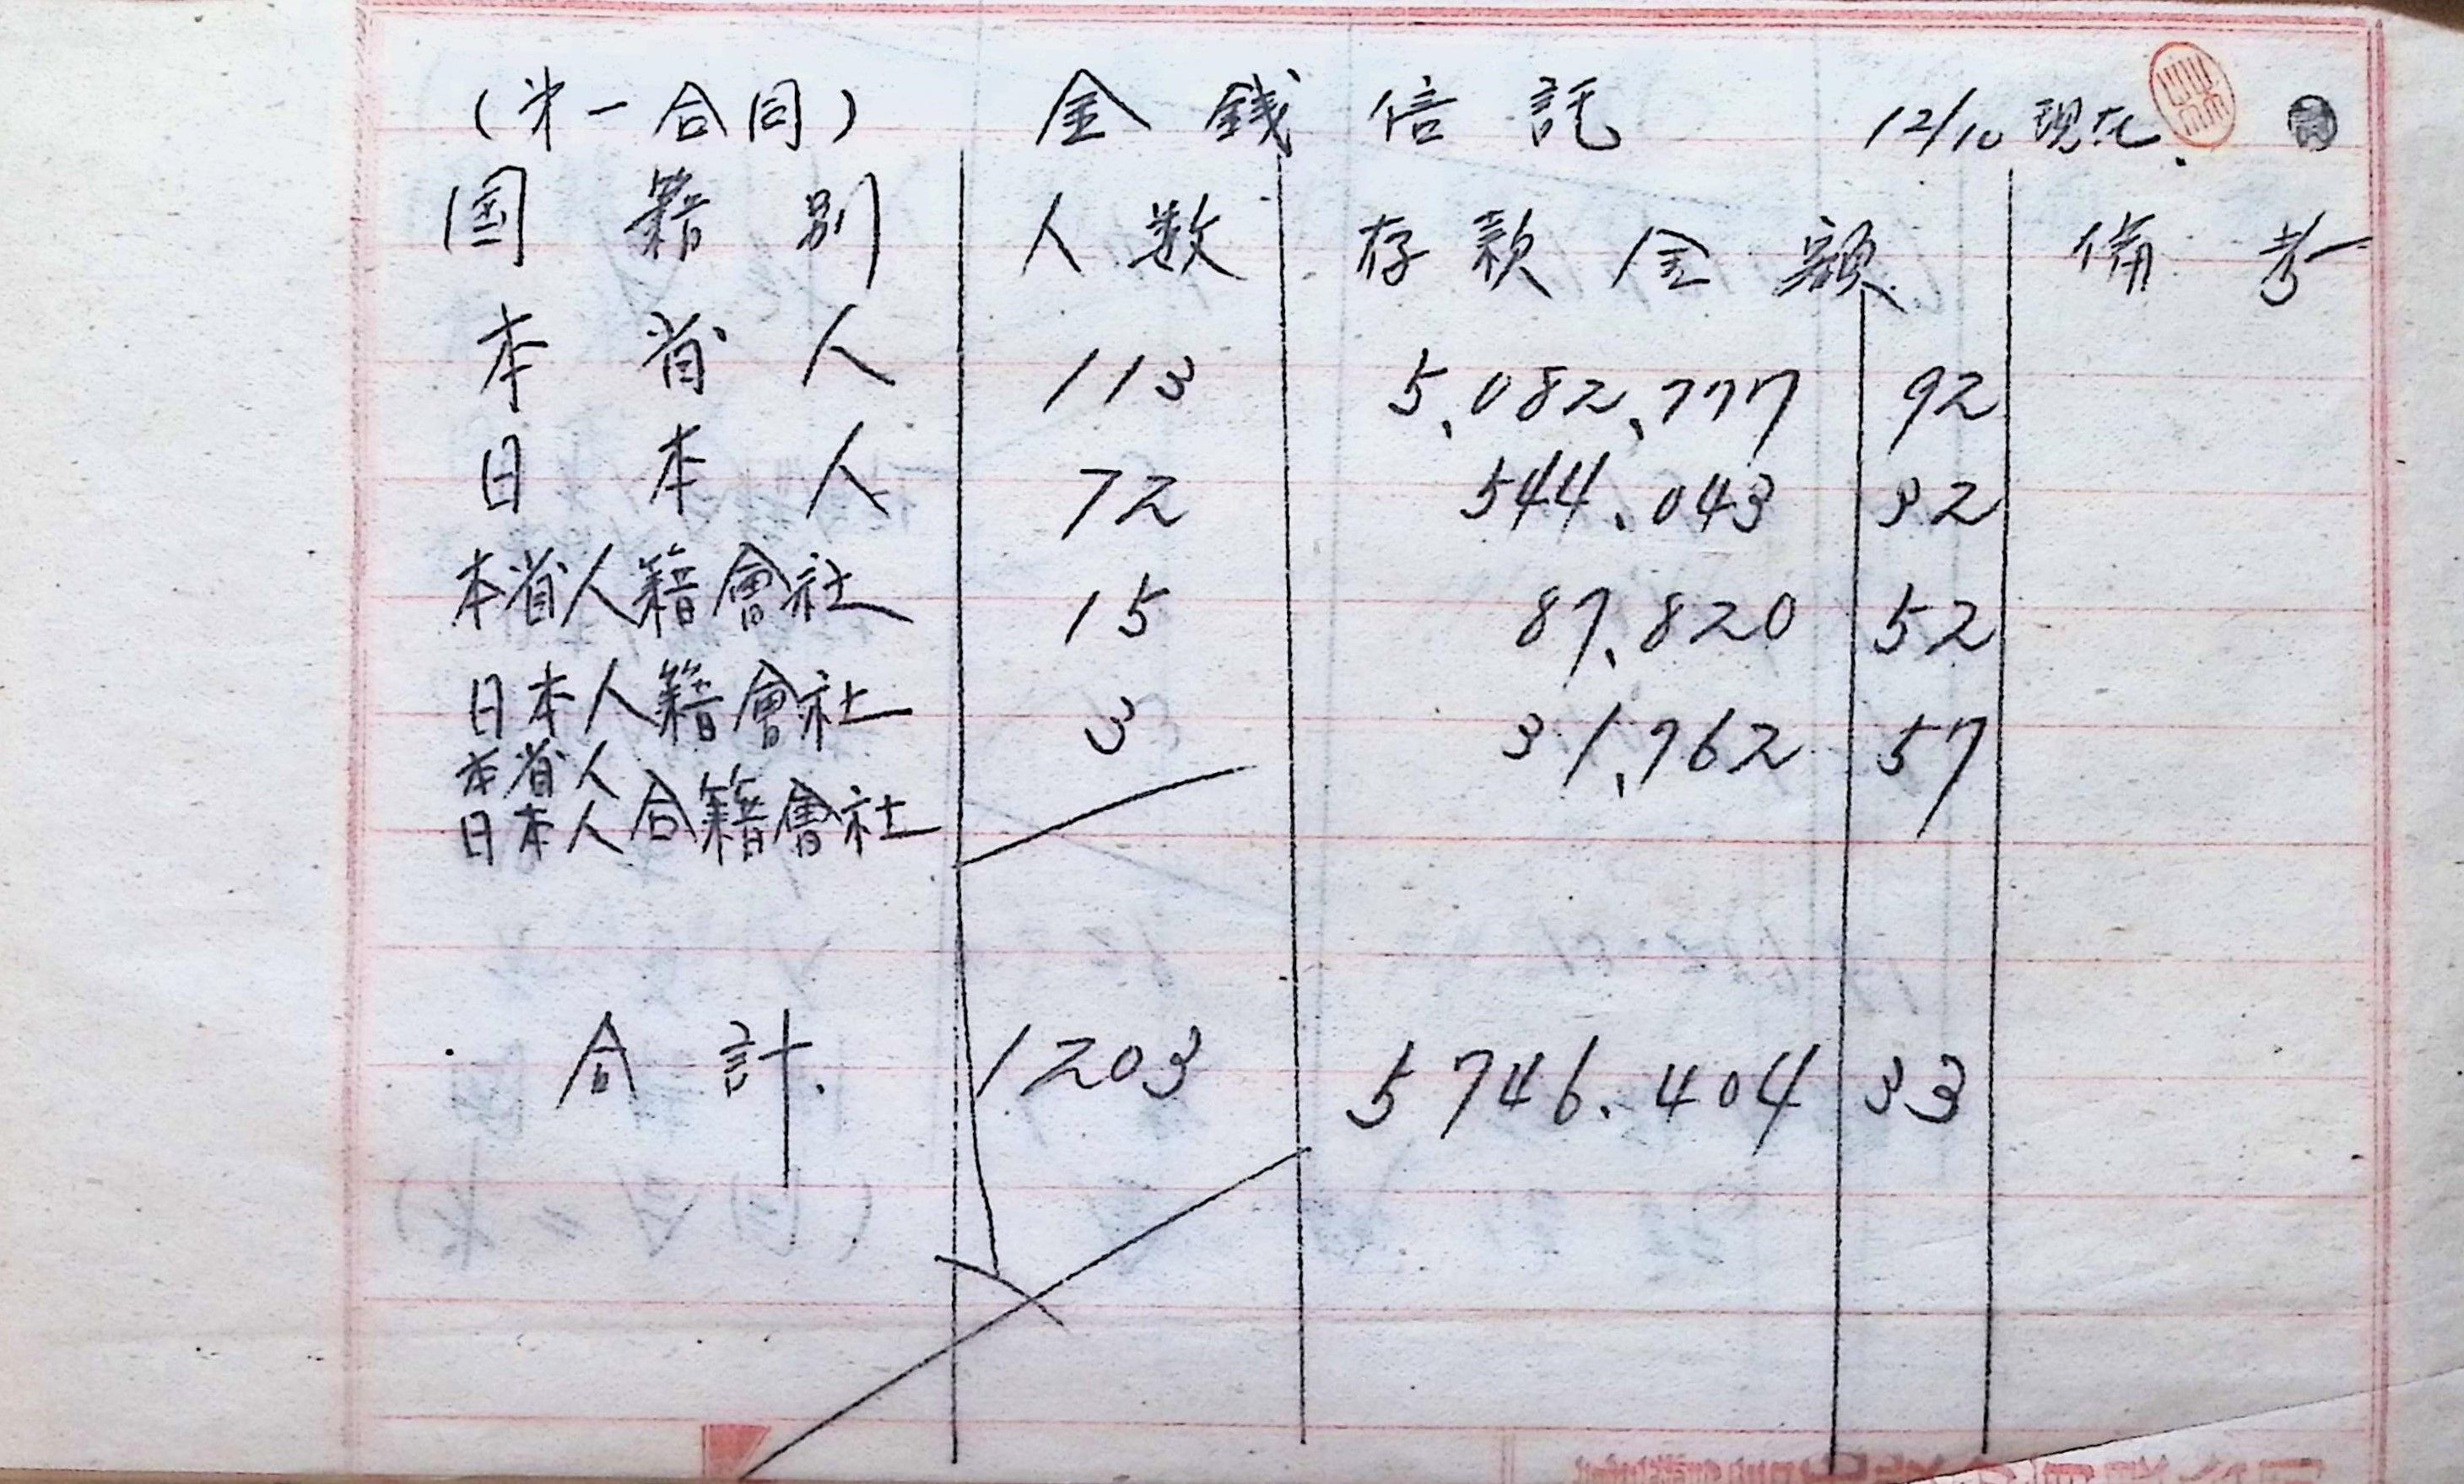 (才一合同) 金錢信託 12/10現在.
国籍別 人数 存款金額 備考
本省人 113 5,082,777 92
日本人 72 544,043 32
本省人籍會社 15 87,820 52
日本人籍會社 3 31,762 57
本省人
日本人合籍會社
合計. 1203 5746.404 33